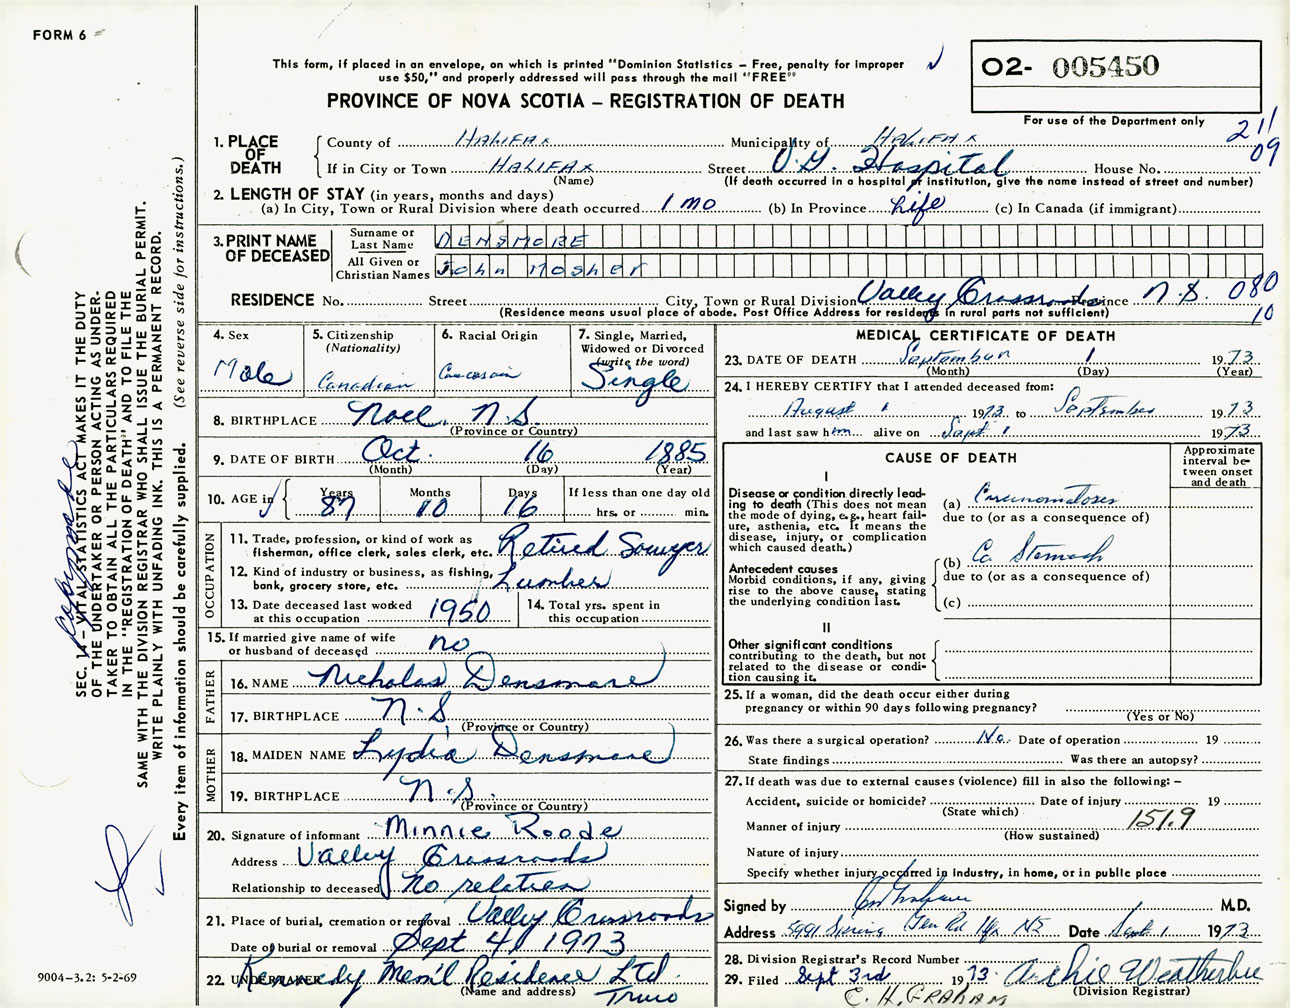 FORM 6
This form, if placed in an envelope, on which is printed "Dominion Statistics – Free, penalty for improper
use $50," and properly addressed will pass through the mail "FREE"
PROVINCE OF NOVA SCOTIA – REGISTRATION OF DEATH
02- 005450
For use of the Department only
211
09
1. PLACE OF DEATH
County of HALIFAX Municipality of HALIFAX
If in City or Town HALIFAX Street V.G. Hospital House No.
(Name) (If death occurred in a hospital or institution, give the name instead of street and number)
2. LENGTH OF STAY (in years, months and days)
(a) In City, Town or Rural Division where death occurred 1 mo (b) In Province Life (c) In Canada (if immigrant)
3. PRINT NAME OF DECEASED
Surname or Last Name DENSMORE
All Given or Christian Names John Mosher
RESIDENCE No. Street City, Town or Rural Division Valley Crossroads Province N.S. 080
(Residence means usual place of abode. Post Office Address for residents in rural parts not sufficient) 10
4. Sex Male
5. Citizenship (Nationality) Canadian
6. Racial Origin Caucasain
7. Single, Married, Widowed or Divorced (write the word) Single
8. BIRTHPLACE Noel, N.S.
(Province or Country)
9. DATE OF BIRTH Oct. 16 1885
(Month) (Day) (Year)
10. AGE in Years 87 Months 10 Days 16 If less than one day old hrs. or min.
OCCUPATION
11. Trade, profession, or kind of work as
fisherman, office clerk, sales clerk, etc. Retired Sawyer
12. Kind of industry or business, as fishing,
bank, grocery store, etc. Lumber
13. Date deceased last worked
at this occupation 1950
14. Total yrs. spent in
this occupation
15. If married give name of wife
or husband of deceased no
FATHER
16. NAME Nicholas Densmore
17. BIRTHPLACE N.S
(Province or Country)
MOTHER
18. MAIDEN NAME Lydia Densmore
19. BIRTHPLACE N.S.
(Province or Country)
20. Signature of informant Minnie Roode
Address Valley Crossroads
Relationship to deceased No relation
21. Place of burial, cremation or removal Valley Crossroads
Date of burial or removal Sept 4, 1973
22. UNDERTAKER Kennedy Mem'l Residence Ltd
(Name and address) Truro
MEDICAL CERTIFICATE OF DEATH
23. DATE OF DEATH September 1 1973
(Month) (Day) (Year)
24. I HEREBY CERTIFY that I attended deceased from:
August 1 1973 to September 1973
and last saw him alive on Sept 1 1973
CAUSE OF DEATH
Approximate interval between onset and death
I
Disease or condition directly leading to death (This does not mean the mode of dying, e.g., heart failure, asthenia, etc. It means the disease, injury, or complication which caused death.)
(a) Carcinomatosis
due to (or as a consequence of)
(b) Ca Stomach
due to (or as a consequence of)
(c)
Antecedent causes
Morbid conditions, if any, giving
rise to the above cause, stating
the underlying condition last.
II
Other significant conditions
contributing to the death, but not
related to the disease or condition causing it.
25. If a woman, did the death occur either during
pregnancy or within 90 days following pregnancy?
(Yes or No)
26. Was there a surgical operation? No. Date of operation 19
State findings Was there an autopsy?
27. If death was due to external causes (violence) fill in also the following: –
Accident, suicide or homicide? Date of injury 19
(State which)
Manner of injury 151.9
(How sustained)
Nature of injury
Specify whether injury occurred in industry, in home, or in public place
Signed by M.D.
Address 5991 Spring Gdn Rd Hfx NS Date Sept 1 1973
28. Division Registrar's Record Number
29. Filed Sept 3rd 1973. Archie Weatherbee
(Division Registrar)
E. H. GRAHAM
SEC. 14 – VITAL STATISTICS ACT MAKES IT THE DUTY
OF THE UNDERTAKER OR PERSON ACTING AS UNDER-
TAKER TO OBTAIN ALL THE PARTICULARS REQUIRED
IN THE "REGISTRATION OF DEATH" AND TO FILE THE
SAME WITH THE DIVISION REGISTRAR WHO SHALL ISSUE THE BURIAL PERMIT.
WRITE PLAINLY WITH UNFADING INK. THIS IS A PERMANENT RECORD.
Every item of information should be carefully supplied. (See reverse side for instructions.)
9004-3.2: 5-2-69